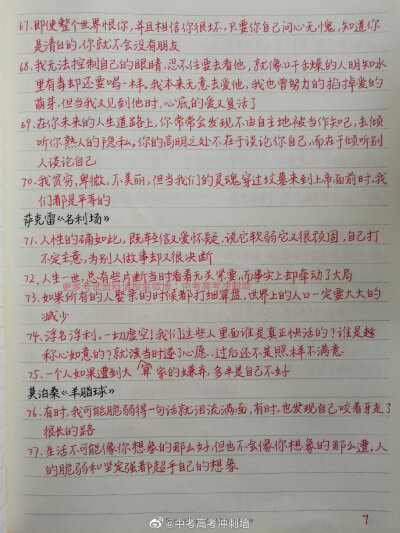 67.即使整个世界恨你,并且相信你很坏,只要你自己问心无愧,知道你
是清白的,你就不会没有朋友
68.我无法控制自己的眼睛,忍不住要去看他,就像口干舌燥的人明知水
里有毒却还要喝一样,我本来无意去爱他,我也曾努力的掐掉爱的
萌芽,但当我又见到他时,心底的爱又复活了
69.在你未来的人生道路上,你常常会发现不由自主地被当作知己,去倾
听你熟人的隐私。你的高明之处不在于谈论你自己,而在于倾听别
人谈论自己
70.我贫穷,卑微,不美丽,但当我们的灵魂穿过坟墓来到上帝面前时,我
们都是平等的
萨克雷《名利场》
71.人性的确如此,既轻信又爱怀疑,说它软弱它又很顽固,自己打
不定主意,为别人做事却又很决断
72.人生一世,总有些片断当时看着无关紧要,而事实上却牵动了大局
73.如果所有的人娶亲的时候都打细算盘,世界上的人口一定要大大的
减少
74.浮名浮利,一切虚空!我们这些人里面谁是真正快活的?谁是趁
称心如意的?就该当时遂了心愿,过后还不是照样不满意
75.一个人如果遭到大算家的嫌弃,多半是自己不好
莫泊桑《羊脂球》
76.有时,我可能脆弱得一句话就泪流满面,有时,也发现自己咬着牙走了
很长的路
77.生活不可能像你想象的那么好,但也不会像你想象的那么遭,人
的脆弱和坚强都超乎自己的想象
7
@中考高考冲刺墙